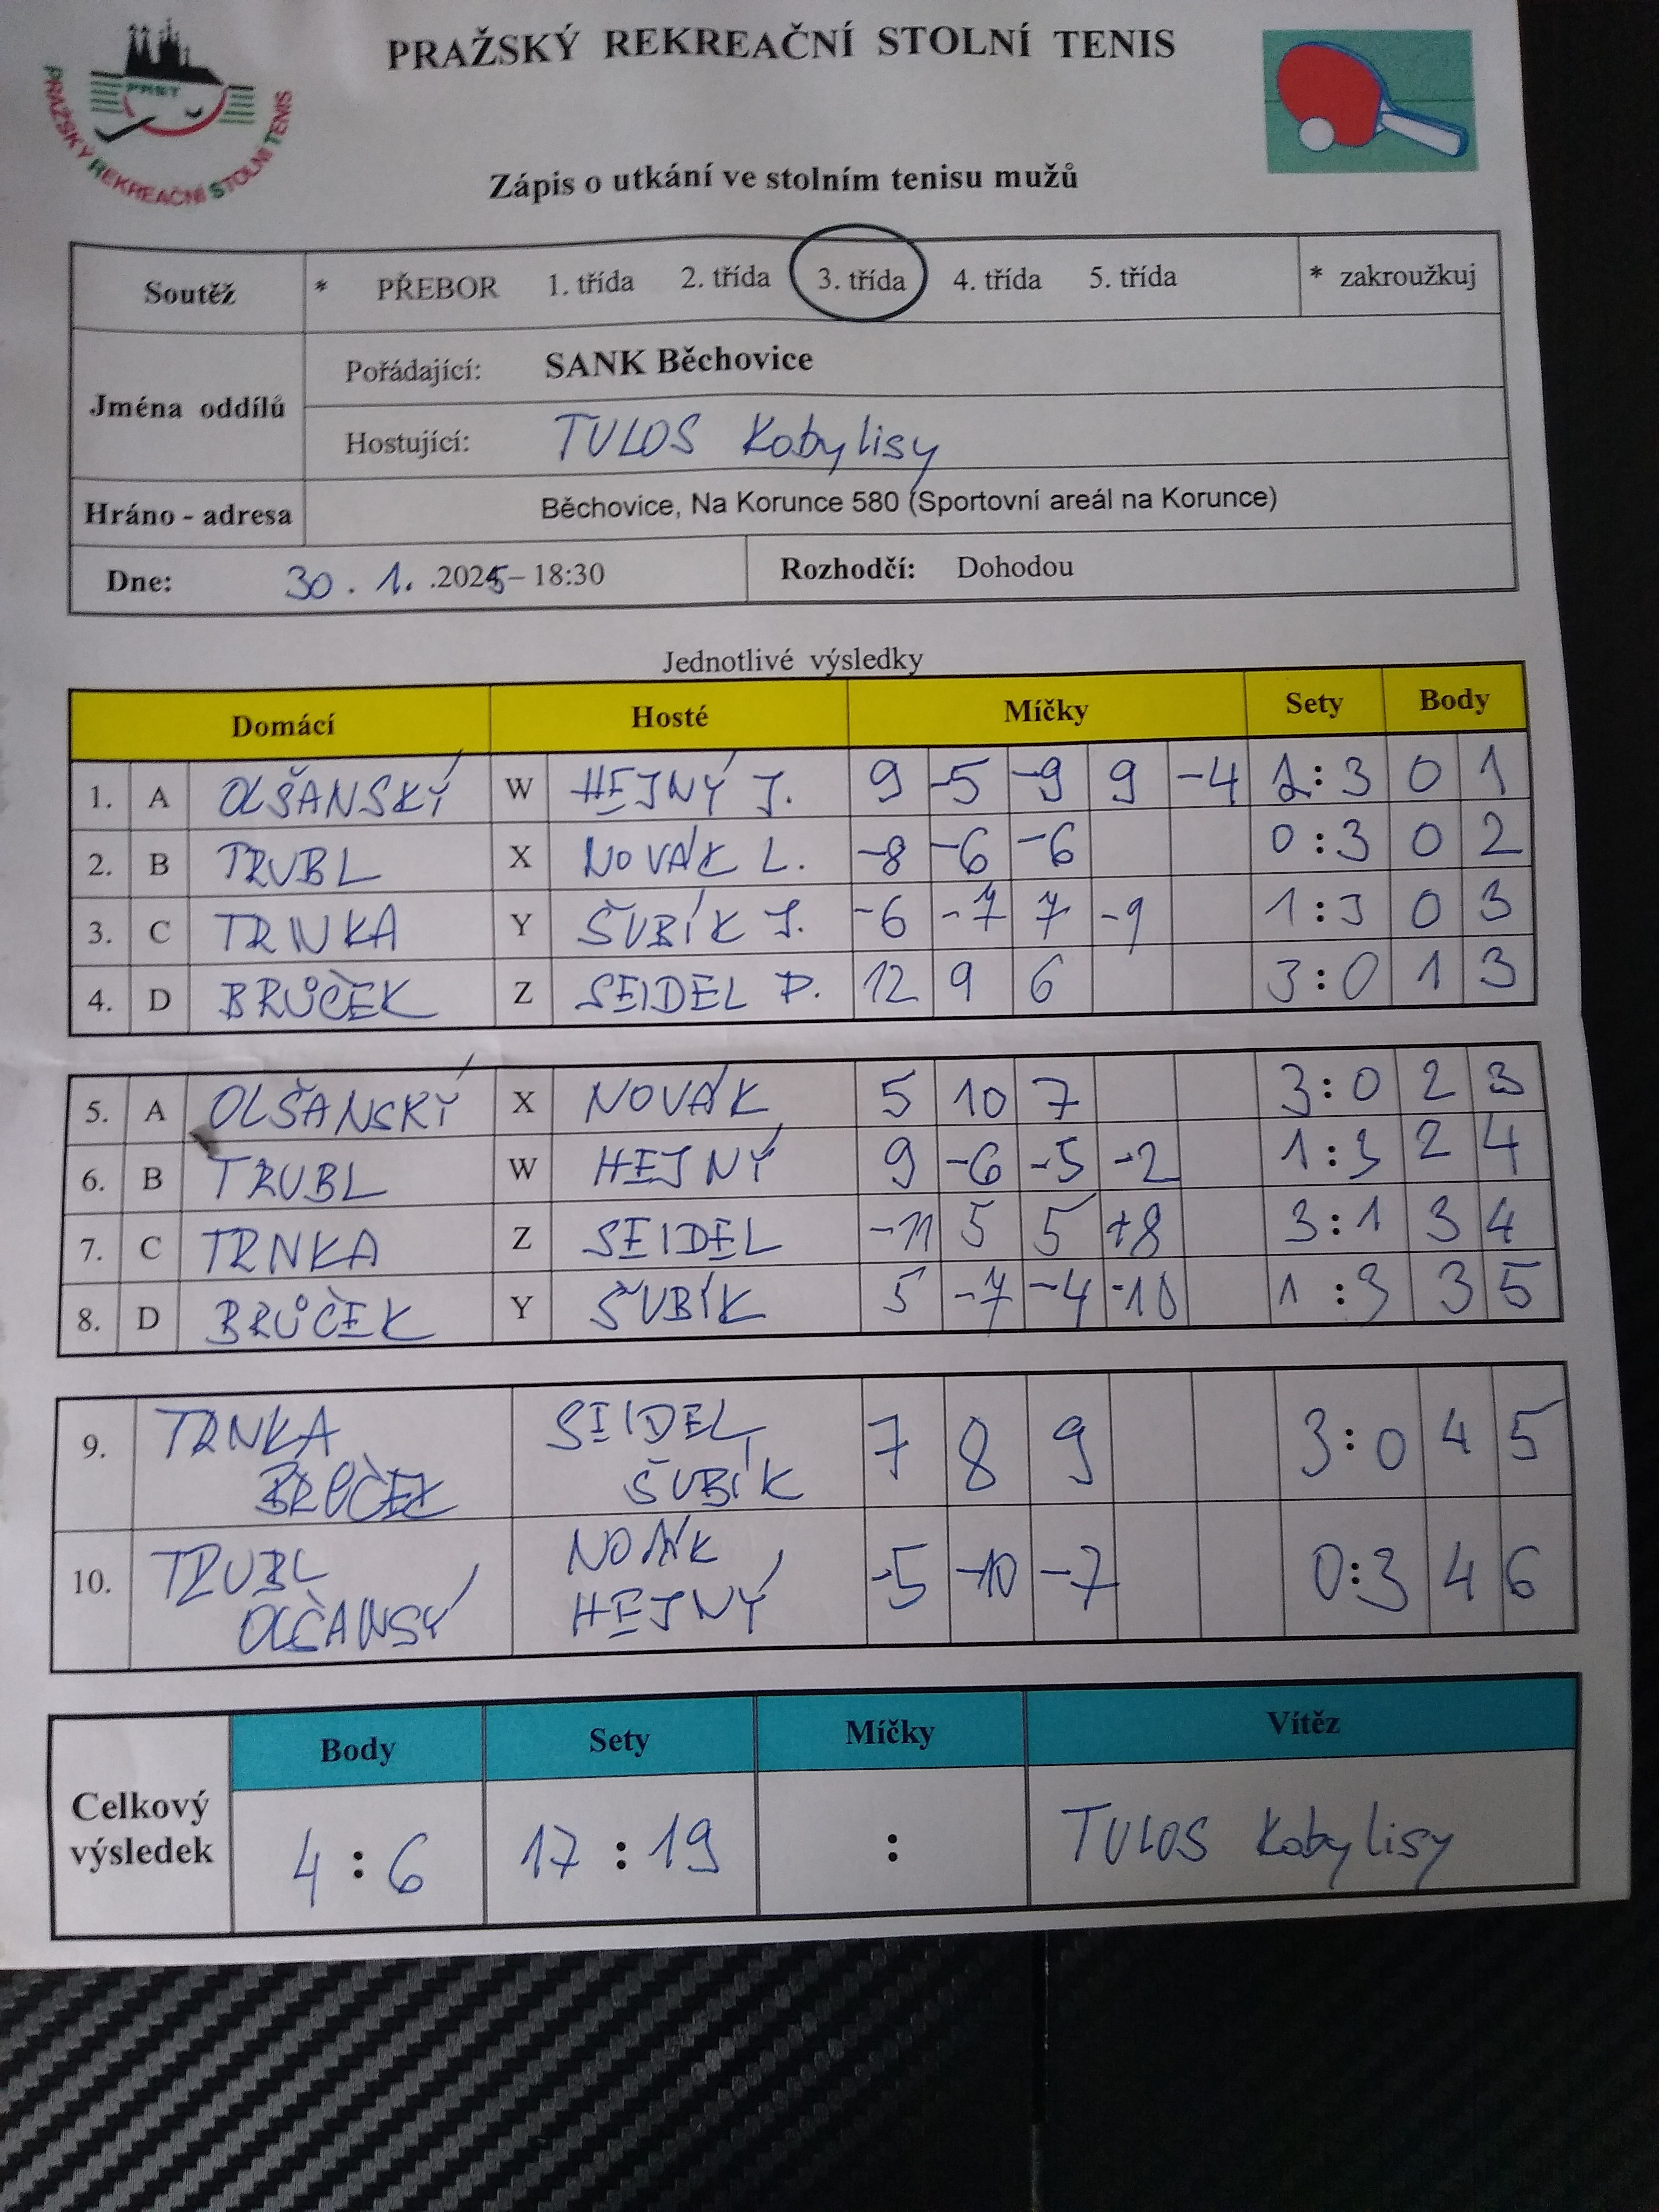 PRAŽSKÝ REKREAČNÍ STOLNÍ TENIS
PRST
PRAŽSKÝ REKREAČNÍ STOLNÍ TENIS
Zápis o utkání ve stolním tenisu mužů
Soutěž * PŘEBOR 1. třída 2. třída 3. třída 4. třída 5. třída * zakroužkuj
Jména oddílů
Pořádající: SANK Běchovice
Hostující: TULOS Kobylisy
Hráno - adresa Běchovice, Na Korunce 580 (Sportovní areál na Korunce)
Dne: 30. 1. .2025 – 18:30 Rozhodčí: Dohodou
Jednotlivé výsledky
Domácí Hosté Míčky Sety Body
1. A OLŠANSKÝ W HEJNÝ J. 9 -5 -9 9 -4 2:3 0 1
2. B TRUBL X NOVÁK L. -8 -6 -6 0:3 0 2
3. C TRNKA Y ŠUBÍK J. -6 -7 7 -9 1:3 0 3
4. D BRŮČEK Z SEIDEL P. 12 9 6 3:0 1 3
5. A OLŠANSKÝ X NOVÁK 5 10 7 3:0 2 3
6. B TRUBL W HEJNÝ 9 -6 -5 -2 1:3 2 4
7. C TRNKA Z SEIDEL -11 5 5 +8 3:1 3 4
8. D BRŮČEK Y ŠUBÍK 5 -7 -4 -10 1:3 3 5
9. TRNKA SEIDEL 7 8 9 3:0 4 5
BRŮČEK ŠUBÍK
10. TRUBL NOVÁK -5 -10 -7 0:3 4 6
OLČANSÝ HEJNÝ
Body Sety Míčky Vítěz
Celkový výsledek 4:6 17:19 : TULOS Kobylisy